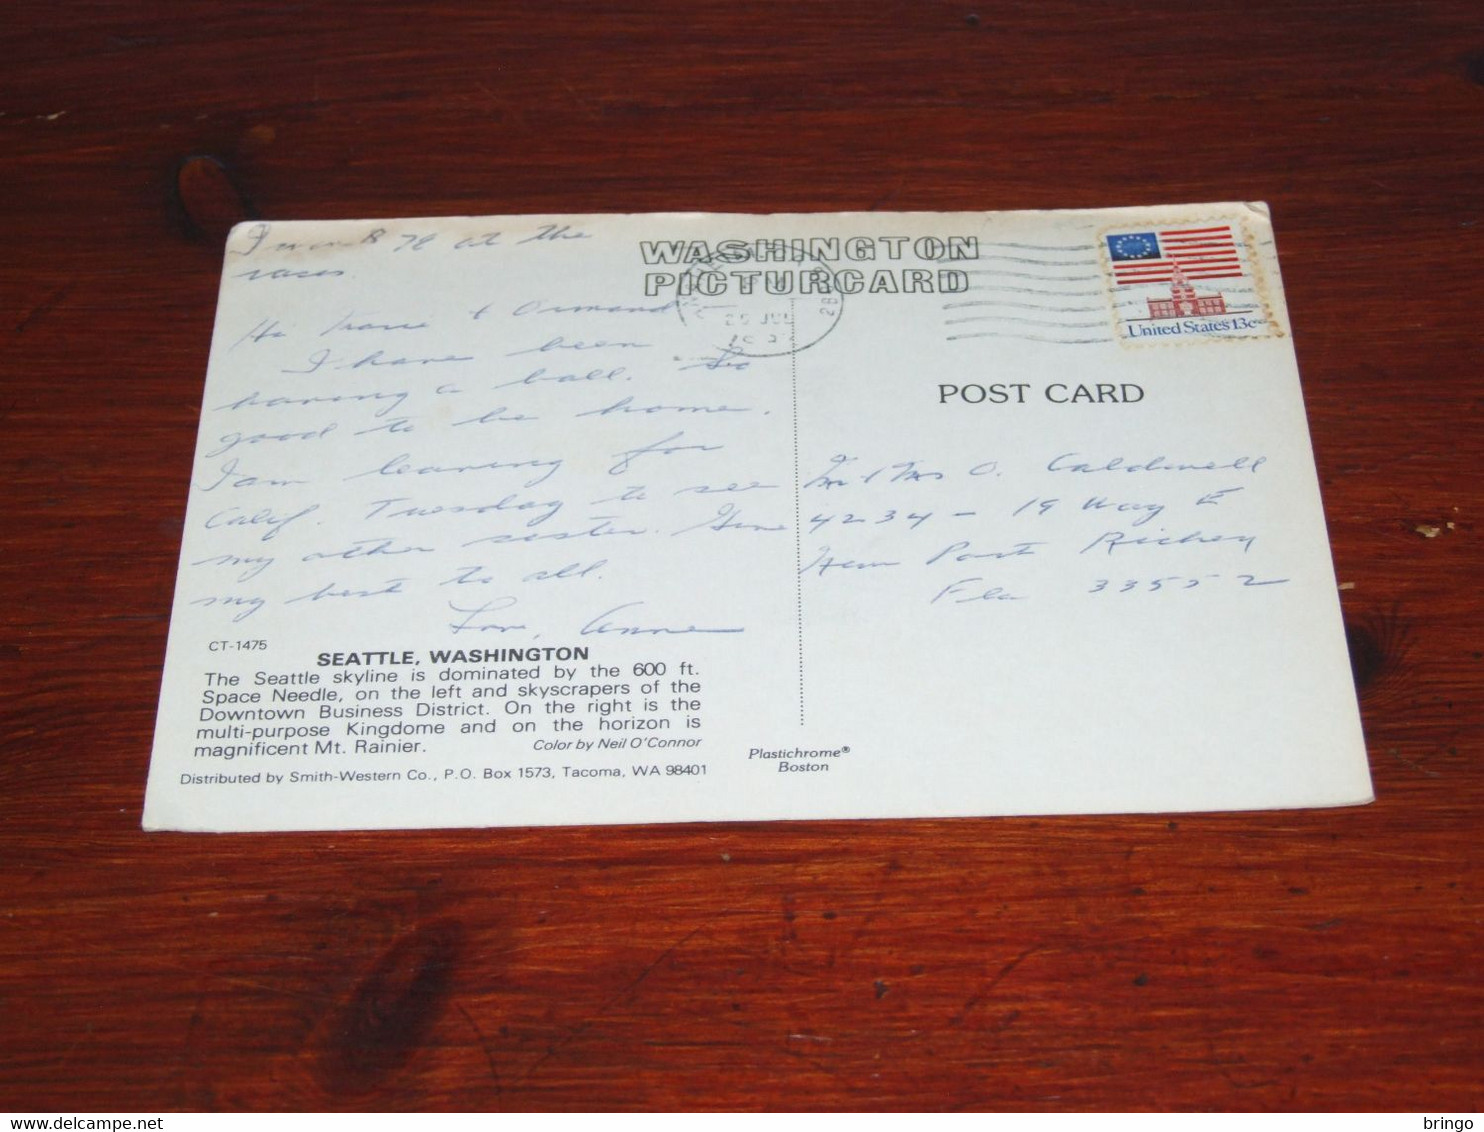 at the
races.
WASHINGTON
PICTURCARD
Hi & Ormand
I have been
having a ball. So
good to be home.
I am leaving for
Calif. Tuesday to see
my other sister. Give
my best to all.
Love, Anne
25 JUL
United States 13c
POST CARD
Mr & Mrs O. Caldwell
4234 - 19 Way E
New Port Richey
Fla 33552
CT-1475
SEATTLE, WASHINGTON
The Seattle skyline is dominated by the 600 ft.
Space Needle, on the left and skyscrapers of the
Downtown Business District. On the right is the
multi-purpose Kingdome and on the horizon is
magnificent Mt. Rainier. Color by Neil O'Connor
Distributed by Smith-Western Co., P.O. Box 1573, Tacoma, WA 98401
Plastichrome®
Boston
delcampe.net
bringo